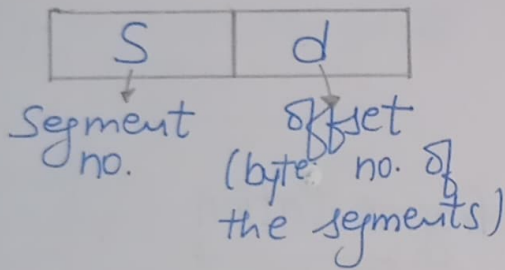 S d
Segment offset
no. (byte no. of
the segments)